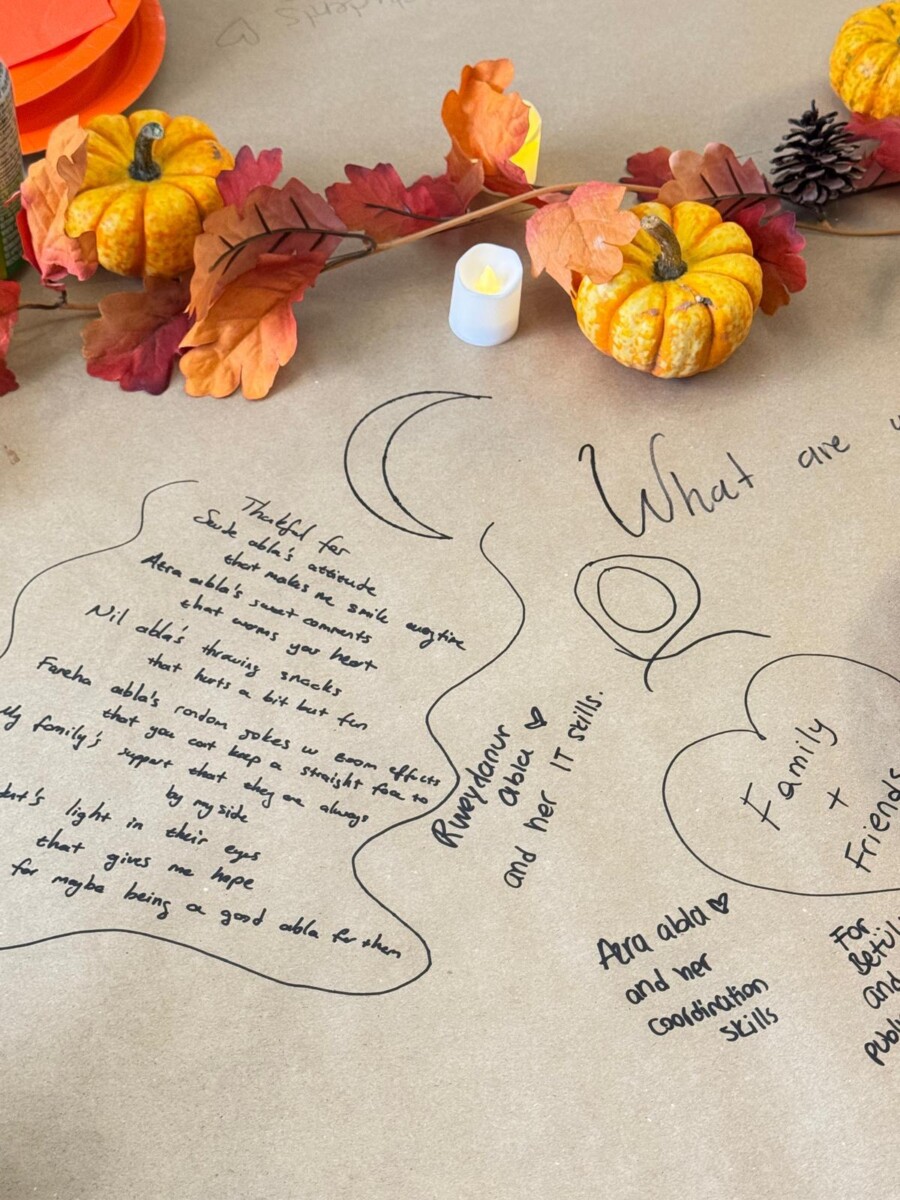 students
Thankful for
Sude abla's attitude
that makes me smile everytime
Azra abla's sweet comments
that worms your heart
Nil abla's throwing snacks
that hurts a bit but fun
Fareha abla's random jokes w zoom effects
that you cant keep a straight face to
My family's support that they are always
by my side
light in their eyes
that gives me hope
for maybe being a good abla for them
Ruveydanur
abla ♡
and her IT skills.
What are
Family
+
Friends
Azra abla ♡
and her
coordination
skills
For
Betül
and